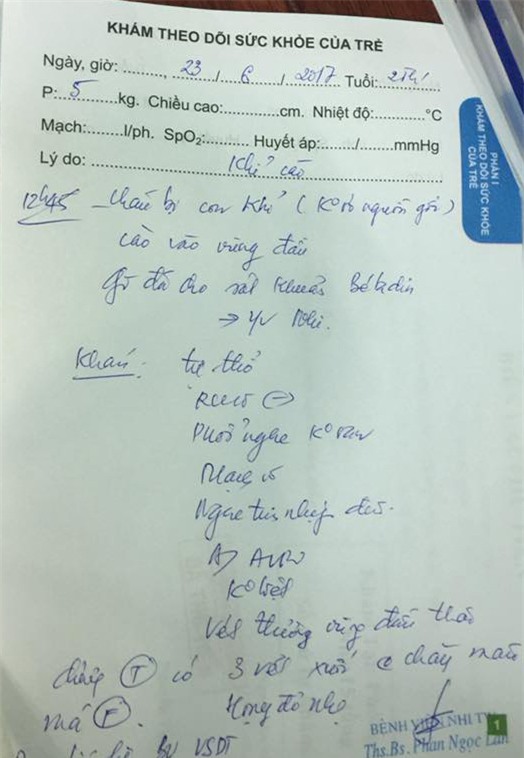 KHÁM THEO DÕI SỨC KHỎE CỦA TRẺ
Ngày, giờ: ........, 23 / 6 / 2017 Tuổi: 2Th
P: 5 kg. Chiều cao:............cm. Nhiệt độ:...........°C
Mạch:........l/ph. SpO₂:............ Huyết áp:......../........mmHg
Lý do: Khỉ cào
PHẦN I
KHÁM THEO DÕI SỨC KHỎE
CỦA TRẺ
12h45 - cháu bị con khỉ (K° rõ nguồn gốc)
cào vào vùng đầu
Gđ đã cho sát khuẩn Bétadin
→ Nhi.
Khám: tự thở
(-)
Phổi nghe K° ran
Mạch rõ
Ngực tim nhịp đều.
K° liệt
Vết thương vùng đầu
(T) có 3 vết xước chảy máu
má (F). Họng đỏ nhẹ
BV
BỆNH VIỆN NHI TW
Ths.Bs. Phan Ngọc Lan
1